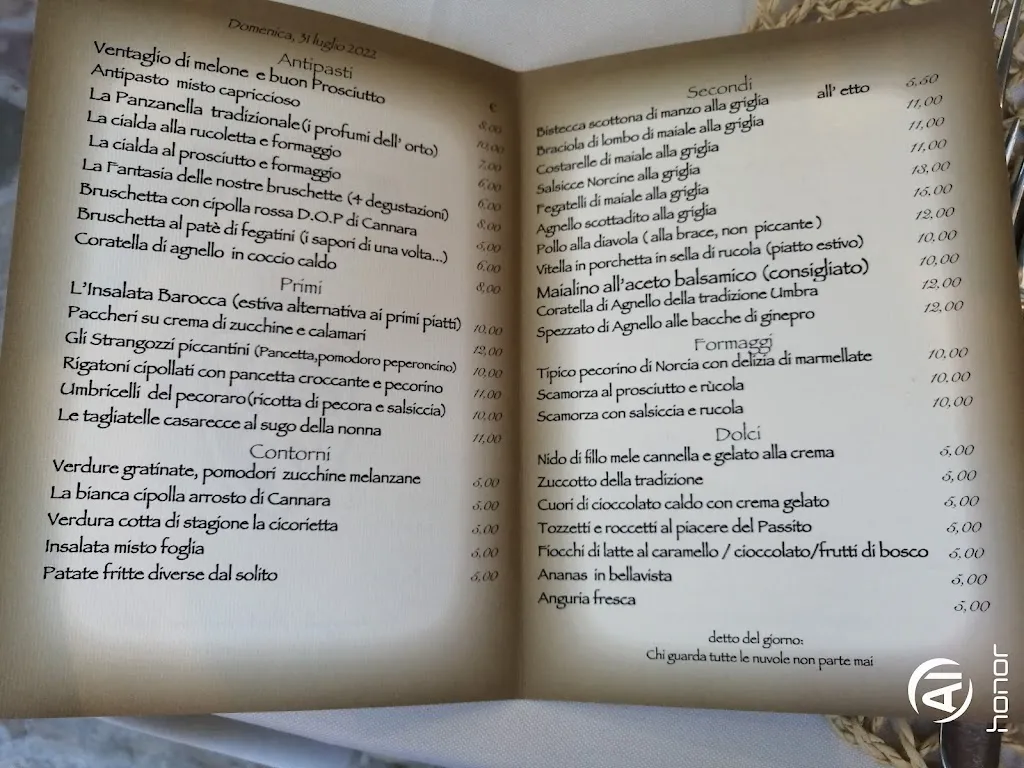 Domenica, 31 luglio 2022
Antipasti
€
Ventaglio di melone e buon Prosciutto 8,00
Antipasto misto capriccioso 10,00
La Panzanella tradizionale (i profumi dell' orto) 7,00
La cialda alla rucoletta e formaggio 6,00
La cialda al prosciutto e formaggio 6,00
La Fantasia delle nostre bruschette (4 degustazioni) 8,00
Bruschetta con cipolla rossa D.O.P di Cannara 5,00
Bruschetta al patè di fegatini (i sapori di una volta...) 6,00
Coratella di agnello in coccio caldo 8,00
Primi
L'Insalata Barocca (estiva alternativa ai primi piatti) 10,00
Paccheri su crema di zucchine e calamari 12,00
Gli Strangozzi piccantini (Pancetta,pomodoro peperoncino) 10,00
Rigatoni cipollati con pancetta croccante e pecorino 11,00
Umbricelli del pecoraro(ricotta di pecora e salsiccia) 10,00
Le tagliatelle casarecce al sugo della nonna 11,00
Contorni
Verdure gratinate, pomodori zucchine melanzane 5,00
La bianca cipolla arrosto di Cannara 5,00
Verdura cotta di stagione la cicorietta 5,00
Insalata misto foglia 5,00
Patate fritte diverse dal solito 5,00
Secondi
Bistecca scottona di manzo alla griglia all' etto 5,50
Braciola di lombo di maiale alla griglia 11,00
Costarelle di maiale alla griglia 11,00
Salsicce Norcine alla griglia 11,00
Fegatelli di maiale alla griglia 13,00
Agnello scottadito alla griglia 15,00
Pollo alla diavola ( alla brace, non piccante ) 12,00
Vitella in porchetta in sella di rucola (piatto estivo) 10,00
Maialino all'aceto balsamico (consigliato) 10,00
Coratella di Agnello della tradizione Umbra 12,00
Spezzato di Agnello alle bacche di ginepro 12,00
Formaggi
Tipico pecorino di Norcia con delizia di marmellate 10,00
Scamorza al prosciutto e rùcola 10,00
Scamorza con salsiccia e rucola 10,00
Dolci
Nido di fillo mele cannella e gelato alla crema 5,00
Zuccotto della tradizione 5,00
Cuori di cioccolato caldo con crema gelato 6,00
Tozzetti e roccetti al piacere del Passito 6,00
Fiocchi di latte al caramello / cioccolato/frutti di bosco 6,00
Ananas in bellavista 5,00
Anguria fresca 5,00
detto del giorno:
Chi guarda tutte le nuvole non parte mai
AI
honor